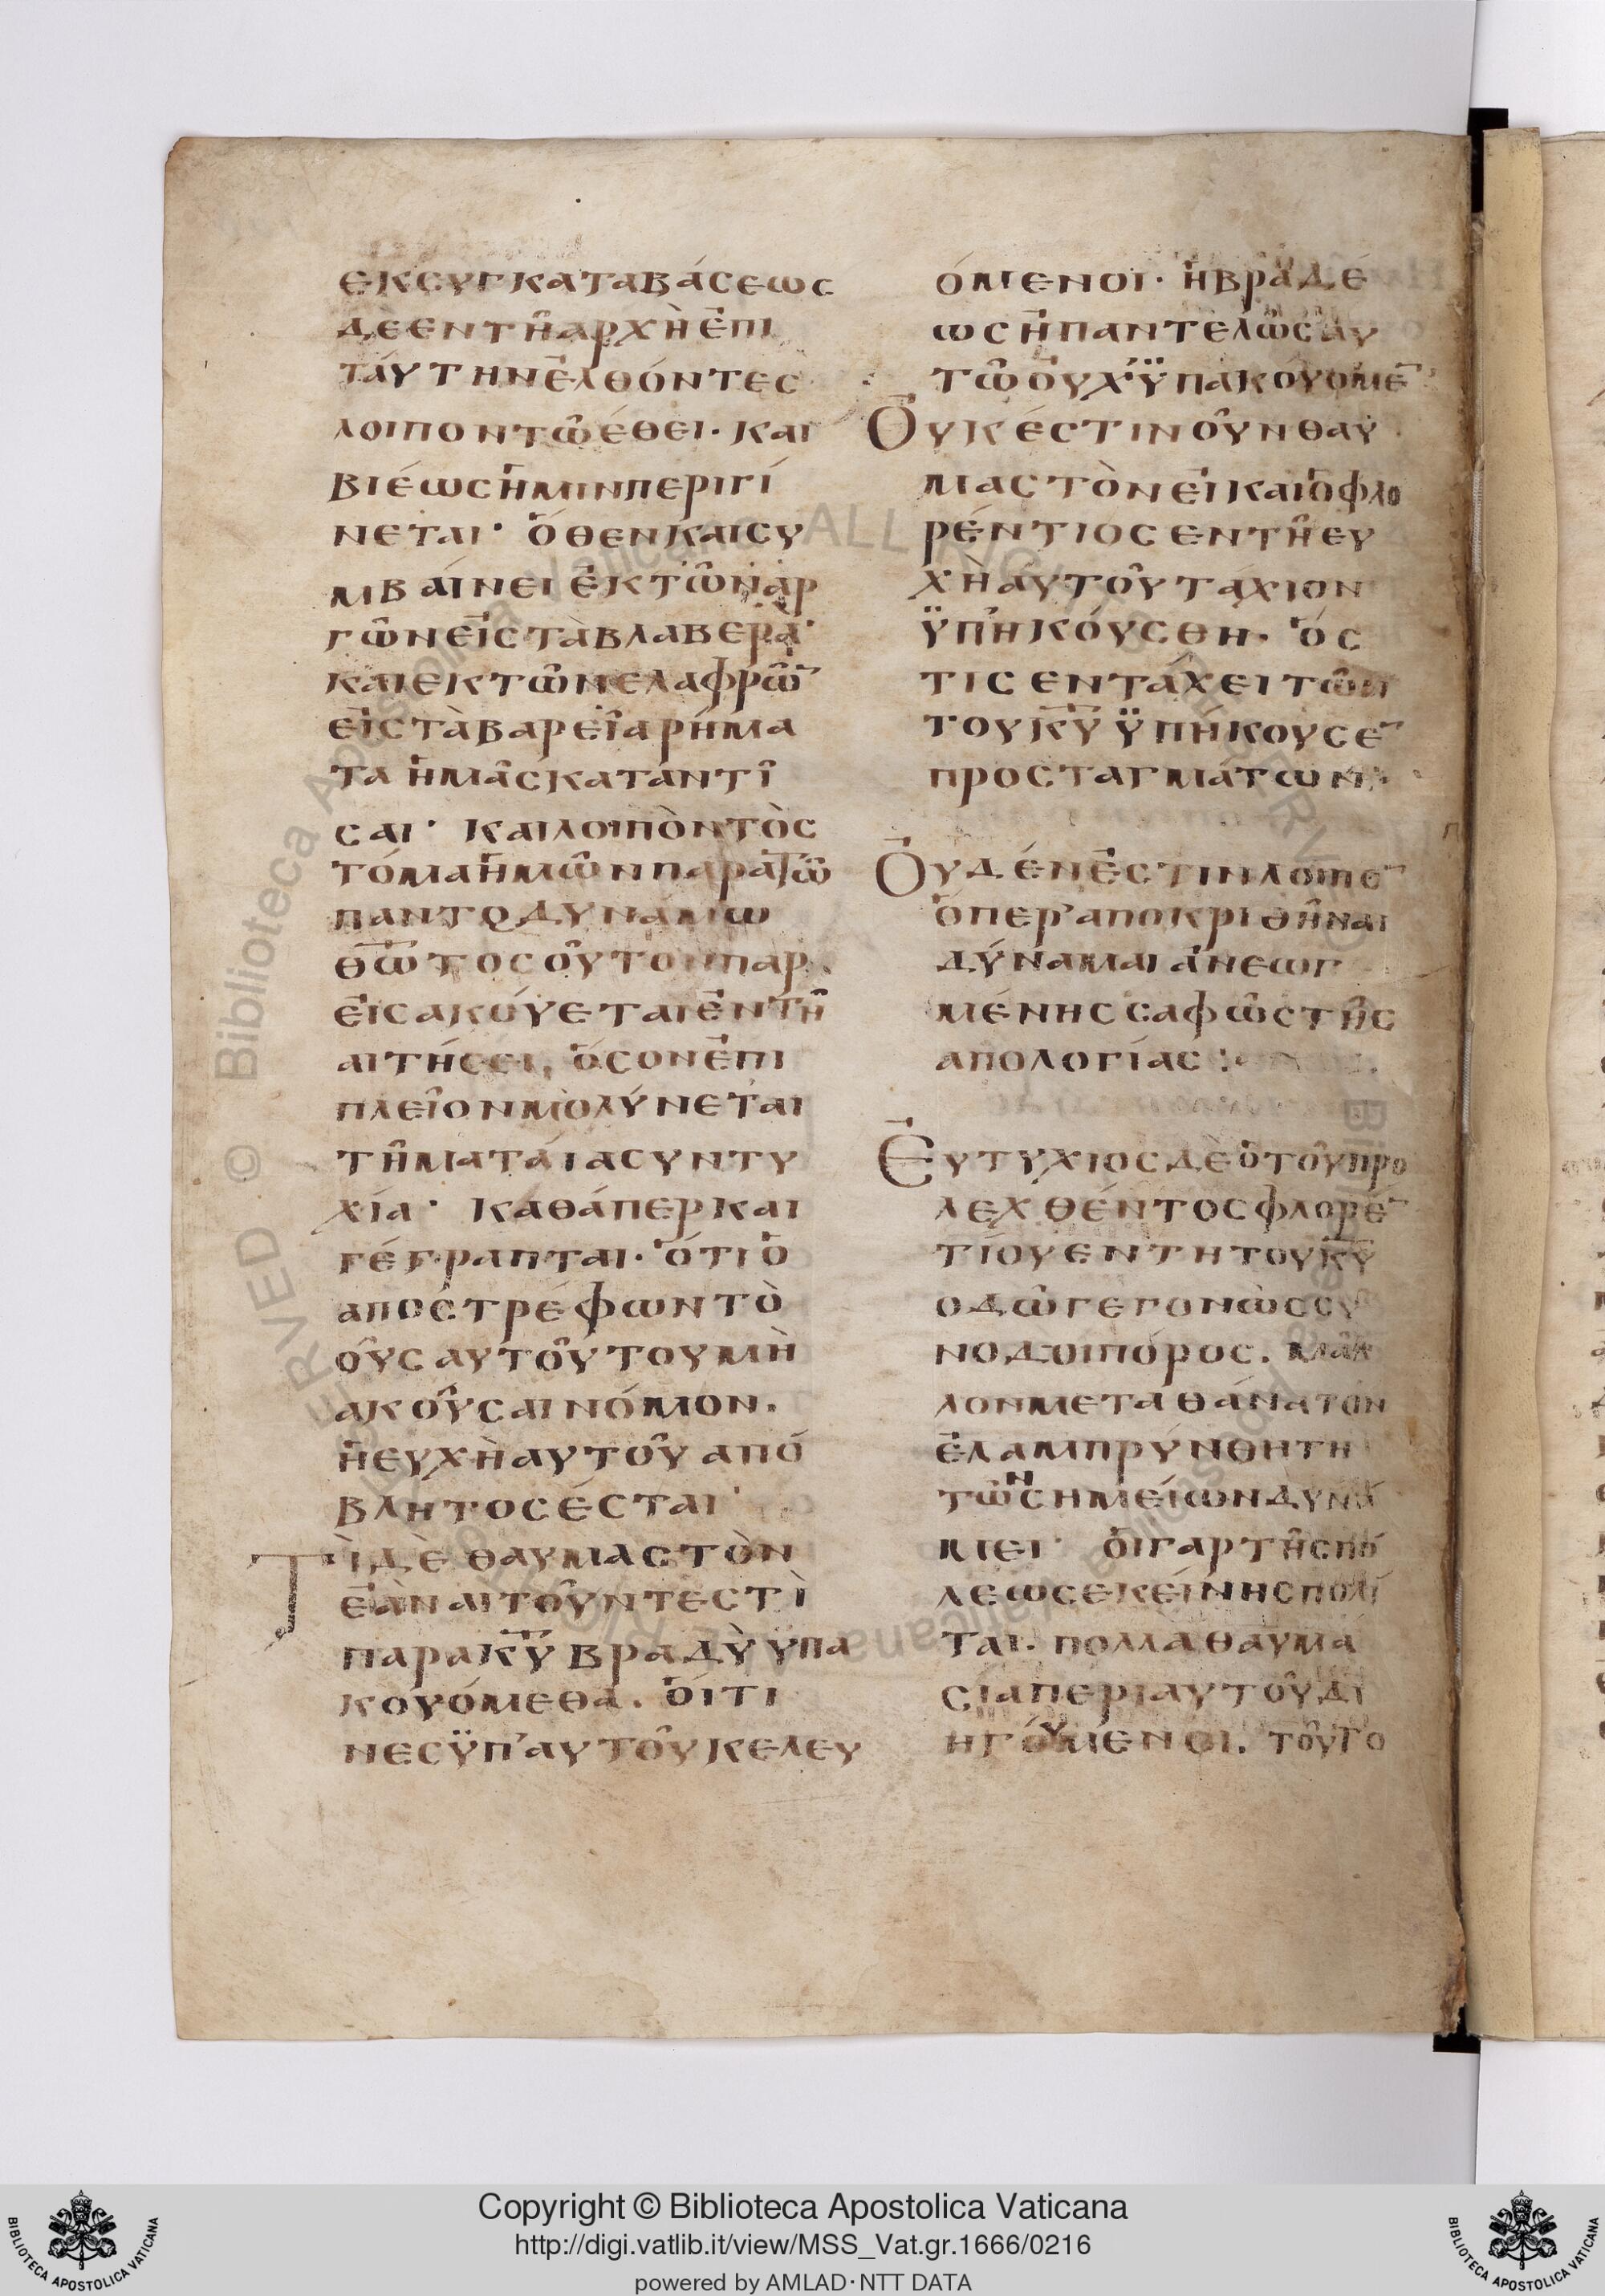 ἐκ συγκαταβάσεως
δὲ ἐν τῆ ἀρχὴ ἐπὶ
τάυτην ἐλθόντες
λοιπον τῶ έθει· και
βιέως ἡμιν περιγί
νεται· ὅθεν και συ
μβαίνει ἐκ τῶν αρ
γῶν εἰς τὰ βλαβερὰ·
και εκ τῶν ελαφρῶ̅
εἰς τὰ βαρεῖα ρήμα
τα ἡμᾶς καταντῖ
σαι· και λοιπὸν τὸ σ
τόμα ἡμῶν παρα τῶ
παντοδυνάμω
θ̅ω̅ τοσοῦτον παρ
εἰσακούεται ἐν τῆ
αιτήσει, ὅσον ἐπι
πλεῖον μολύνεται
τῆ ματάια συντυ
χία· καθάπερ και
γέγραπται· ὅτι ὁ
αποστρέφων τὸ
οὖς αυτοῦ του μὴ
ακοῦσαι νόμον.
ἡ ευχὴ αυτοῦ από
βλητος έσται·
Τὶ δὲ θαυμαστὸν
ἐὰν αιτοῦντὲς τὶ
παρα κ̅υ̅ βραδὺ υπα
κουόμεθα. ὅιτι
νες ϋπ' αυτοῦ κελευ
όμενοι· ἡ βραδέ
ως ἡ παντελῶς αυ
τῶ οὐχ' ϋπακούομε̅
Ὀυκ έστιν οῦν θαυ
μαστὸν εἰ και ὁ φλο
ρέντιος εν τῆ ευ
χὴ αυτοῦ τάχιον
ϋπηκούσθη· ὅσ
τις εν τάχει τῶν
του κ̅υ̅ ϋπήκουσε̅
προσταγματων·
Ὀυδέν ἐστιν λοιπο̅
ὅπερ αποκριθῆναι
δύναμαι ἀνεωγ
μένης σαφῶς τῆς
απολογίας:
Ἐυτυχιος δὲ ὁ τοῦ προ
λεχθέντος φλορέ̅
τίου εν τη του κ̅υ̅
οδῶ γεγονὼς συ
νοδοιπόρος. μᾶλ
λον μετα θάνατον
ἐλαμπρύνθη τη
τῶν σημείων δυνά
μει· ὁι γαρ τῆς πό
λεως εκείνης πολί
ται· πολλα θαυμά
σια περι αυτοῦ δι
ηγούμένοι. τοῦτο
Copyright © Biblioteca Apostolica Vaticana
http://digi.vatlib.it/view/MSS_Vat.gr.1666/0216
powered by AMLAD·NTT DATA
BIBLIOTECA APOSTOLICA VATICANA
BIBLIOTECA APOSTOLICA VATICANA